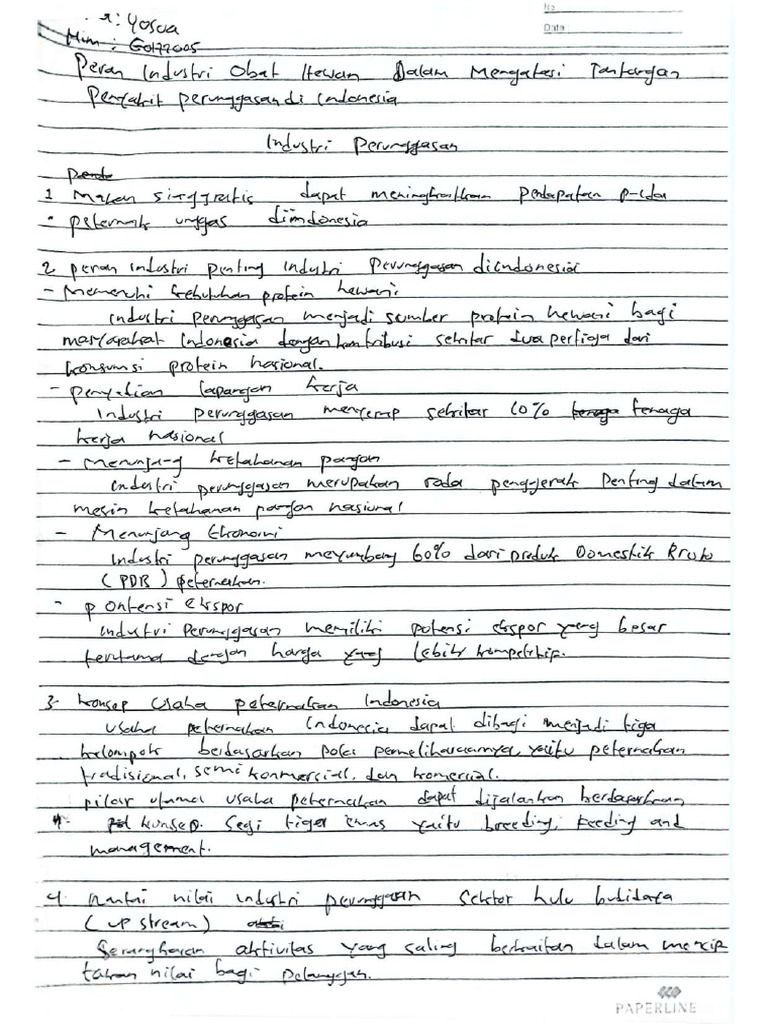 No
Date
: Yosua
Nim : G0177005
Peran Industri Obat Hewan Dalam Mengatasi Tantangan
Penyakit perunggasan di indonesia
Industri Perunggasan
1 Makan siang gratis dapat meningkatkan pendapatan p-lda
- peternak unggas diindonesia
2 peran industri penting industri perunggasan diindonesia
- Memenuhi kebutuhan protein hewani
industri perunggasan menjadi sumber protein hewani bagi
masyarakat Indonesia dengan kontribusi sekitar dua pertiga dari
konsumsi protein nasional.
- penyedian lapangan kerja
Industri perunggasan menyerap sekitar 10% tenaga
kerja nasional
- Menunjang ketahanan pangan
industri perunggasan merupakan roda penggerak penting dalam
mesin ketahanan pangan nasional
- Menunjang Ekonomi
Industri perunggasan menyumbang 60% dari produk Domestik Bruto
(PDB) peternakan.
- pontensi Ekspor
industri perunggasan memiliki potensi ekspor yang besar
terutama dengan harga yang lebih kompetitip.
3 konsep Usaha peternakan Indonesia
usaha peternakan Indonesia dapat dibagi menjadi tiga
kelompok berdasarkan pola pemeliharaannya, yaitu peternakan
tradisional, semi konmercial, dan komercial.
pilar utama usaha peternakan dapat dijalankan berdasarkan
konsep. segi tiga emas yaitu breeding, feeding and
management.
4. Rantai nilai industri perunggasan sektor hulu budidaya
(up stream)
Serangkaian aktivitas yang saling berkaitan dalam mencip
takan nilai bagi pelanggan.
PAPERLINE